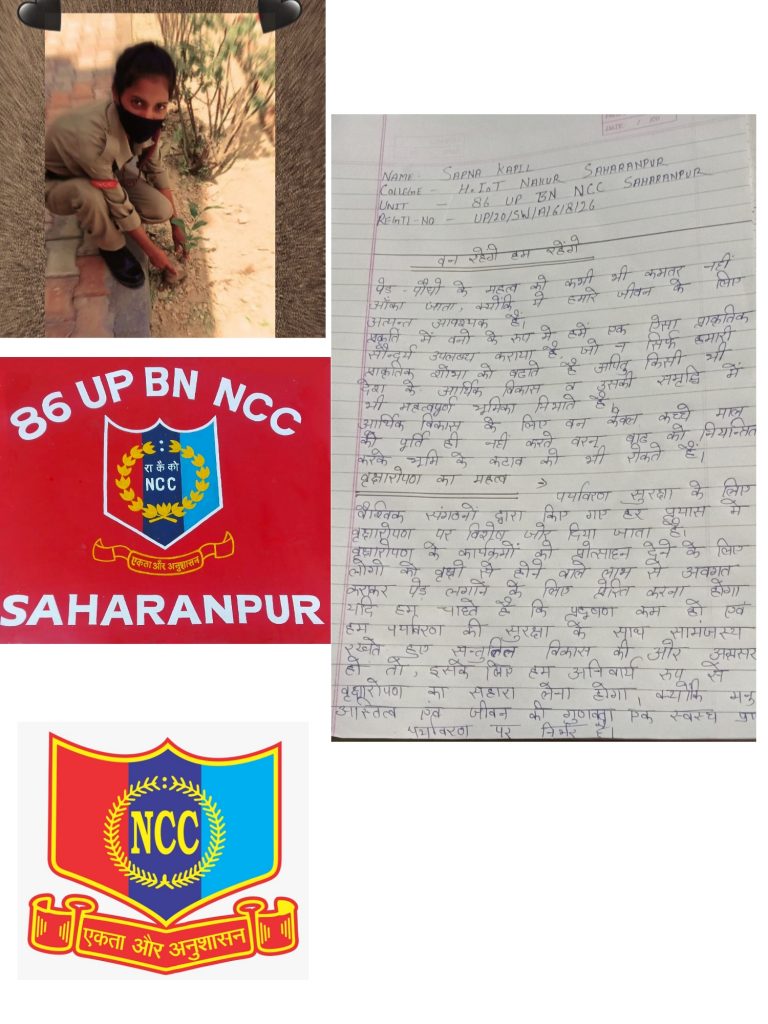 86 UP BN NCC
रा कै को
NCC
एकता और अनुशासन
SAHARANPUR
NCC
एकता और अनुशासन
NAME- SAPNA KAPIL
COLLEGE - H.IOT NAKUR SAHARANPUR
UNIT - 86 UP BN NCC SAHARANPUR
REGTI-NO - UP/20/SW/A/6/8/26
वन रहेंगे हम रहेंगे
पेड़-पौधो के महत्व को कभी भी कमतर नही
आँका जाता, क्योंकि ये हमारे जीवन के लिए
अत्यन्त आवश्यक हैं।
प्रकृति में वनो के रूप मे हमें एक ऐसा प्राकृतिक
सौन्दर्य उपलब्ध कराया है, जो न सिर्फ हमारी
प्राकृतिक शोभा को बढाते है अपितु किसी भी
देश के आर्थिक विकास व उसकी समृद्धि में
भी महत्वपूर्ण भूमिका निभाते है,
आर्थिक विकास के लिए वन केवल कच्चे माल
की पूर्ति ही नही करते वरन् बाढ को नियन्त्रित
करके भूमि के कटाव को भी रोकते हैं।
वृक्षारोपण का महत्व ⇒
पर्यावरण सुरक्षा के लिए
वैश्विक संगठनों द्वारा किए गए हर प्रयास मे
वृक्षारोपण पर विशेष जोर दिया जाता है।
वृक्षारोपण के कार्यक्रमों को प्रोत्साहन देने के लिए
लोगो को वृक्षो से होने वाले लाभ से अवगत
कराकर पेड़ लगाने के लिए प्रेरित करना होगा
यदि हम चाहते है कि प्रदूषण कम हो एवं
हम पर्यावरण की सुरक्षा के साथ सामंजस्य
रखते हुए सन्तुलित विकास की और अग्रसर
हो तो, इसके लिए हम अनिवार्य रूप से
वृक्षारोपण का सहारा लेना होगा, क्योकि मनु
अस्तित्व एवं जीवन की गुणवत्ता एक स्वस्थ प्रा
पर्यावरण पर निर्भर है।